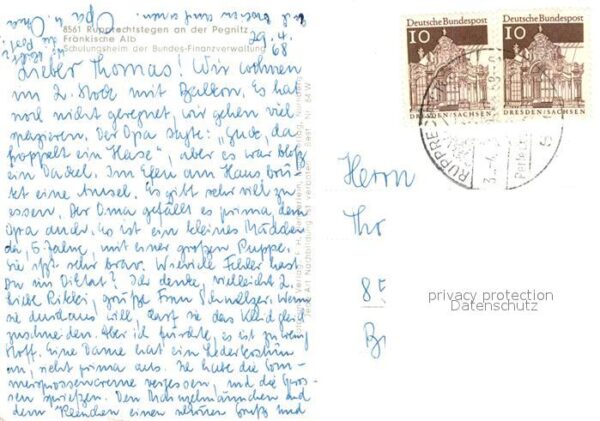 8561 Rupprechtstegen an der Pegnitz
Fränkische Alb
Schulungsheim der Bundes-Finanzverwaltung
29.4.
68
Lieber Thomas! Wir wohnen
im 2. Stock mit Balkon. Es hat
noch nicht geregnet, wir gehen viel
spazieren. Der Opa sagte: "Gude, da
hoppelt ein Hase", aber es war bloß
ein Dackel. Im Efeu am Haus brü-
tet eine Amsel. Es gibt sehr viel zu
essen. Der Oma gefällt es prima, dem
Opa auch. Es ist ein kleines Mädchen
da, 5 Jahre, mit einer großen Puppe.
Sie ißt sehr brav. Wieviel Fehler hast
Du im Diktat? Ich denke, vielleicht 2.
Liebe Rikki, grüße Frau Wenn
sie durchaus will, darf sie das Kleid gleich
zuschneiden. Aber ich fürchte, es ist zu wenig
Stoff. Eine Dame hat ein Lederkostüm
an, sieht prima aus. Ich habe die Som-
mersprossencreme vergessen, und die Spros-
sen spriessen. Dem und
dem einen schönen Gruß und
Opa u. Oma
Herrn
Tho
85
B
Deutsche Bundespost
10
DRESDEN/SACHSEN
Deutsche Bundespost
10
DRESDEN/SACHSEN
privacy protection
Datenschutz